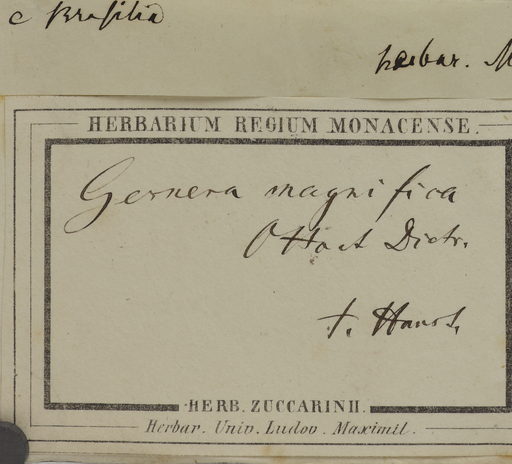 e Brasilia
herbar. M
HERBARIUM REGIUM MONACENSE.
Gesnera magnifica
Otto et Dietr.
t. Hanst.
HERB. ZUCCARINII.
Herbar. Univ. Ludov. Maximil.